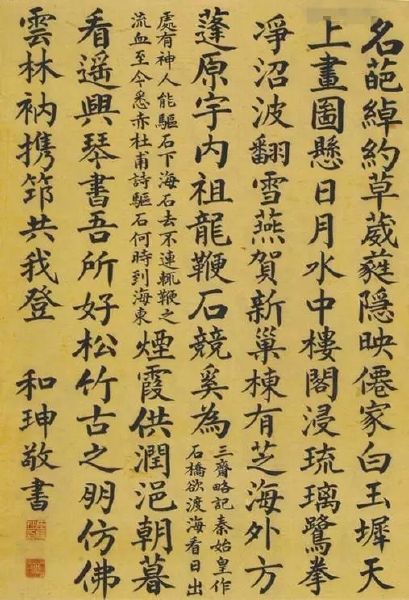 名葩綽約草葳蕤隱映僊家白玉墀天
上畫圖懸日月水中樓閣浸琉璃鷺拳
凈沼波翻雪燕賀新巢棟有芝海外方
蓬原宇内祖龍鞭石競奚為
三齊略記秦始皇作
石橋欲渡海看日出
處有神人能驅石下海石去不速輒鞭之
流血至今悉赤杜甫詩驅石何時到海東
煙霞供潤浥朝暮
看遥興琴書吾所好松竹古之明仿佛
雲林衲携筇共我登
和珅敬書